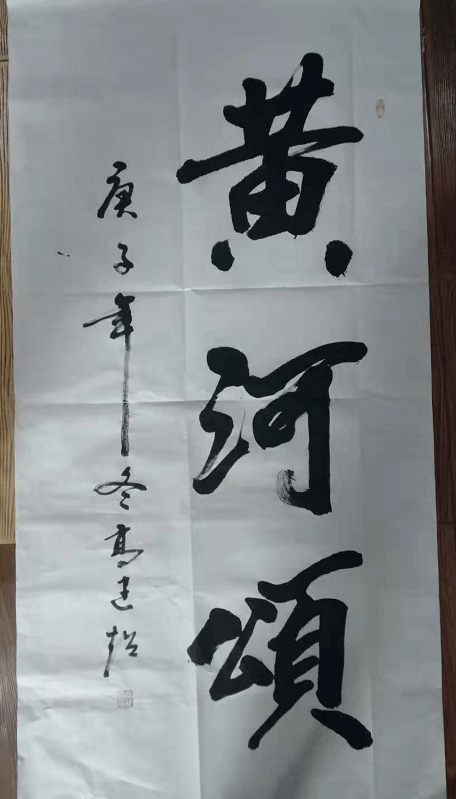 黄河頌
庚子年冬高建超